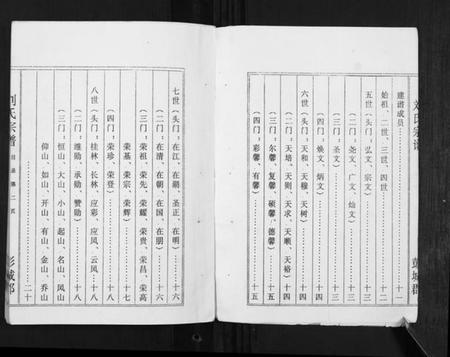 刘氏宗谱
彭城郡
建谱成员……十一
始祖、二世、三世、四世……十二
五世（头门：弘文、宗文）
（二门：尧文、广文、灿文）
（三门：圣文）……十三
（四门：焕文、炳文）……十四
六世（头门：天和、天穆、天树）
（二门：天培、天则、天求、天顺、天裕）十四
（三门：尔馨、有馨、复馨、硕馨、德馨）
（四门：彩馨、有馨）……十五
七世（头门：在江、在湖、圣正、在明）……十六
（二门：在清、在朝、在国、在朋）
（三门：荣祖、荣先、荣耀、荣贵、荣昌、荣高
荣基、荣宗、荣辉）……十七
（四门：荣珍、荣登）
八世（头门：桂林、长林、应彩、应风、云风）十八
（二门：維勋、承勋、赞勋）……十八
（三门：恒山、大山、小山、起山、名山、凤山
仰山、如山、开山、有山、金山、乔山
……二十
刘氏宗谱
目录第二页
彭城郡